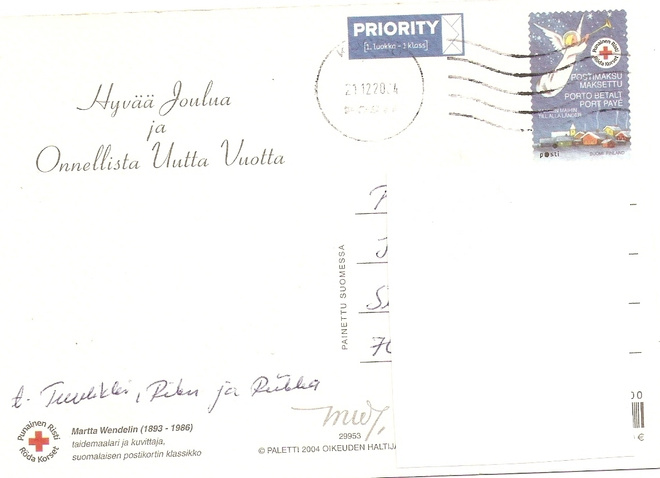 PRIORITY
[1. luokka - 1 klass]
Punainen Risti
Röda Korset
POSTIMAKSU
MAKSETTU
PORTO BETALT
PORT PAYÉ
TILL ALLA LÄNDER
posti
SUOMI FINLAND
Hyvää Joulua
ja
Onnellista Uutta Vuotta
PAINETTU SUOMESSA
t. Tuulikki, Riku ja Riikka
Punainen Risti
Röda Korset
Martta Wendelin (1893 - 1986)
taidemaalari ja kuvittaja,
suomalaisen postikortin klassikko
29953
© PALETTI 2004 OIKEUDEN HALTIJA
€